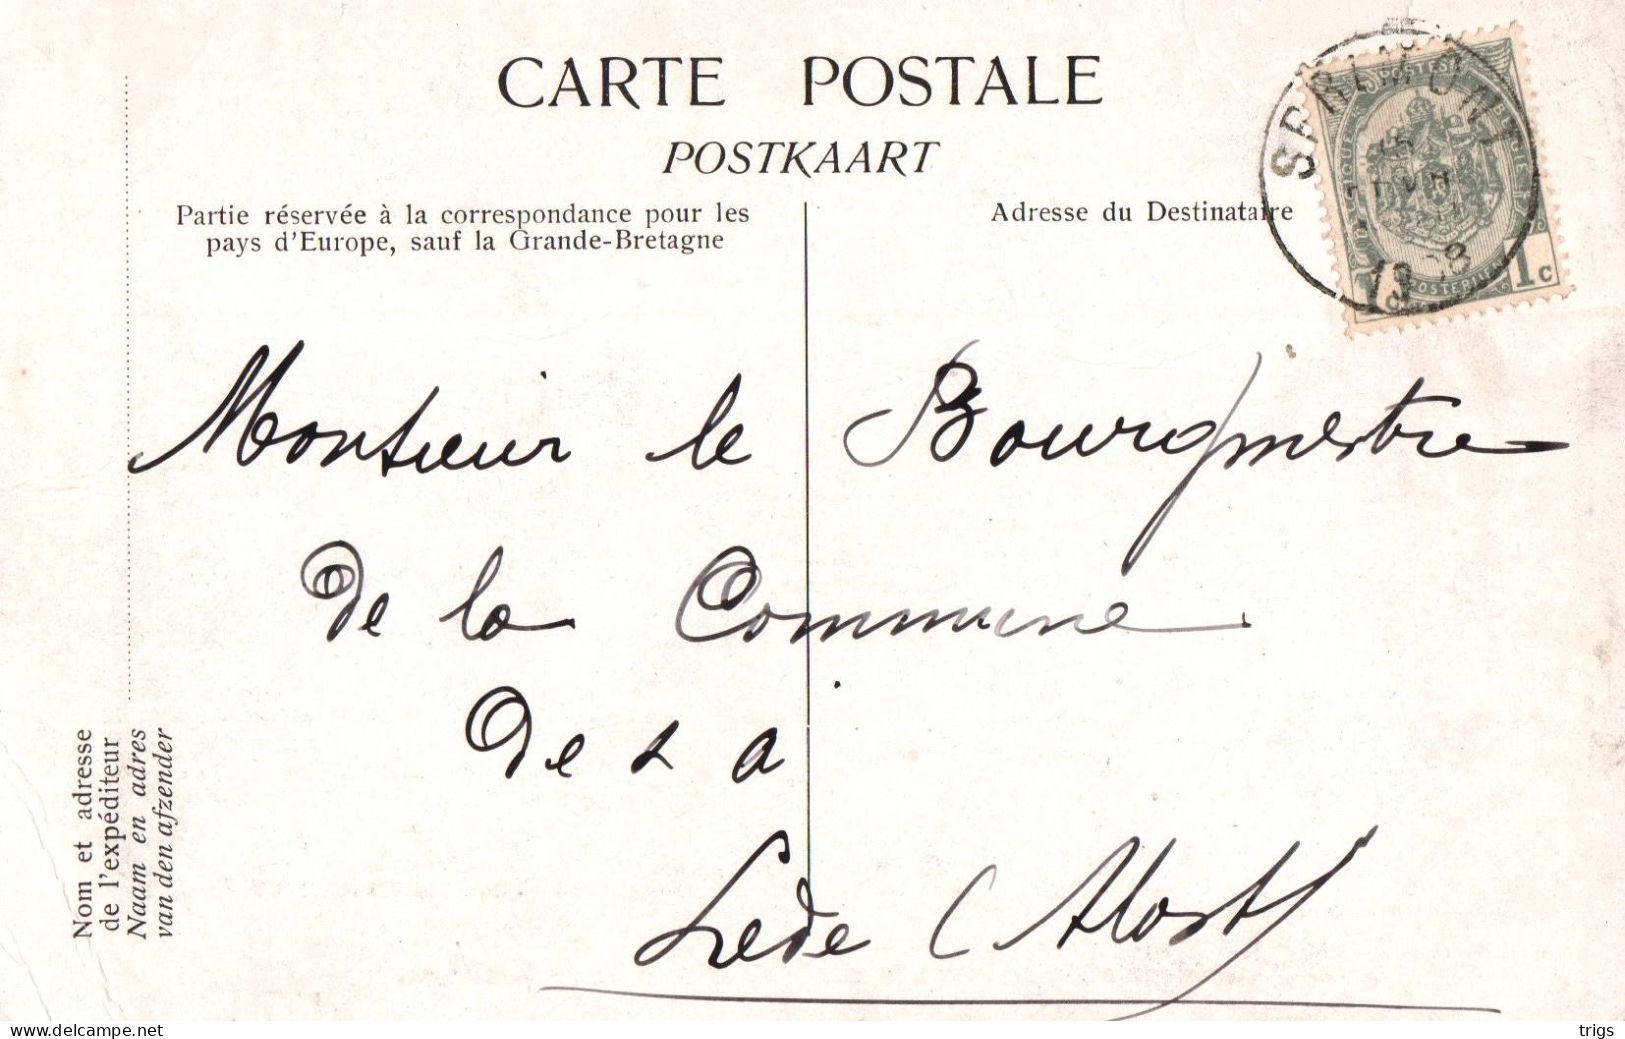 CARTE POSTALE
POSTKAART
Partie réservée à la correspondance pour les
pays d'Europe, sauf la Grande-Bretagne
Adresse du Destinataire
SPRIMONT
POSTES
1c
Monsieur le Bourgmestre
De la Commune
De
Lede (Alost)
Nom et adresse
de l'expéditeur
Naam en adres
van den afzender
www.delcampe.net
trigs